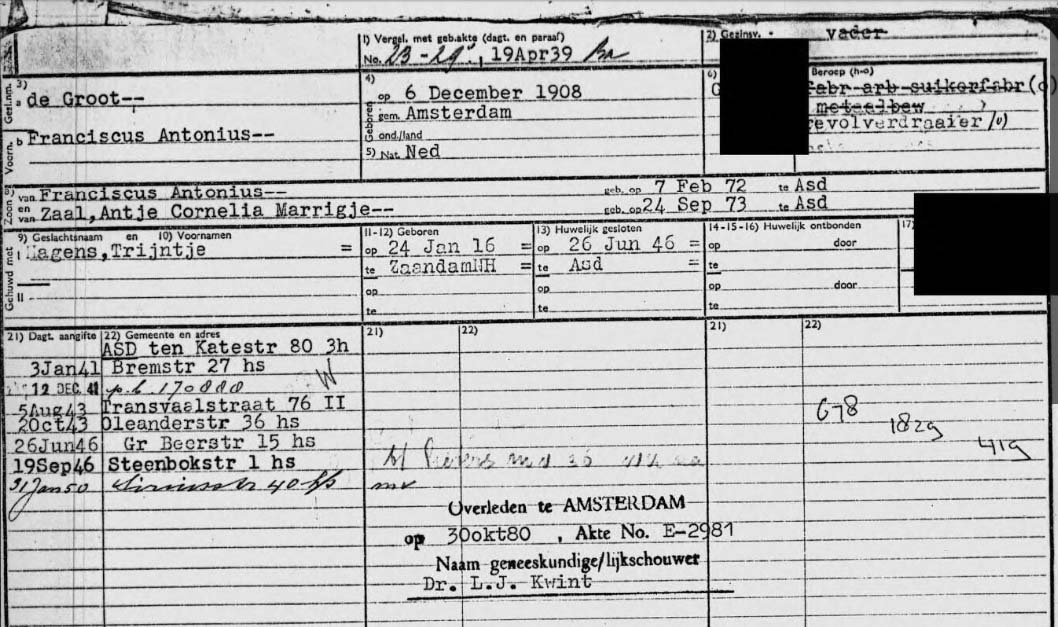 1) Vergel. met geb.akte (dagt. en paraaf)
No. 23-29, 19Apr39
2) Gezinsv. - vader
Gesl.nm. 3)
a de Groot--
Voorn. b Franciscus Antonius--
4)
Geboren op 6 December 1908
gem. Amsterdam
ond./land
5) Nat. Ned
6)
G
Beroep (h-o)
fabr arb suikerfabr (o)
metaalbew )
revolverdraaier (o)
8) Zoon van Franciscus Antonius-- geb. op 7 Feb 72 te Asd
en van Zaal, Antje Cornelia Marrigje-- geb. op 24 Sep 73 te Asd
Gehuwd met
9) Geslachtsnaam en 10) Voornamen
I Hagens, Trijntje =
II
11-12) Geboren
op 24 Jan 16 =
te ZaandamNH =
op
te
13) Huwelijk gesloten
op 26 Jun 46 =
te Asd =
op
te
14-15-16) Huwelijk ontbonden
op door
te
op door
te
17)
21) Dagt. aangifte 22) Gemeente en adres 21) 22) 21) 22)
ASD ten Katestr 80 3h
3Jan41 Bremstr 27 hs
12 DEC. 41 p.b. 170888 W
5Aug43 Transvaalstraat 76 II
20Oct43 Oleanderstr 36 hs
26Jun46 Gr Beerstr 15 hs
19Sep46 Steenbokstr 1 hs
31Jan50 Siriusstr 40 hs
678
1829
419
Overleden te AMSTERDAM
op 30okt80 , Akte No. E-2981
Naam geneeskundige/lijkschouwer
Dr. L.J. Kwint